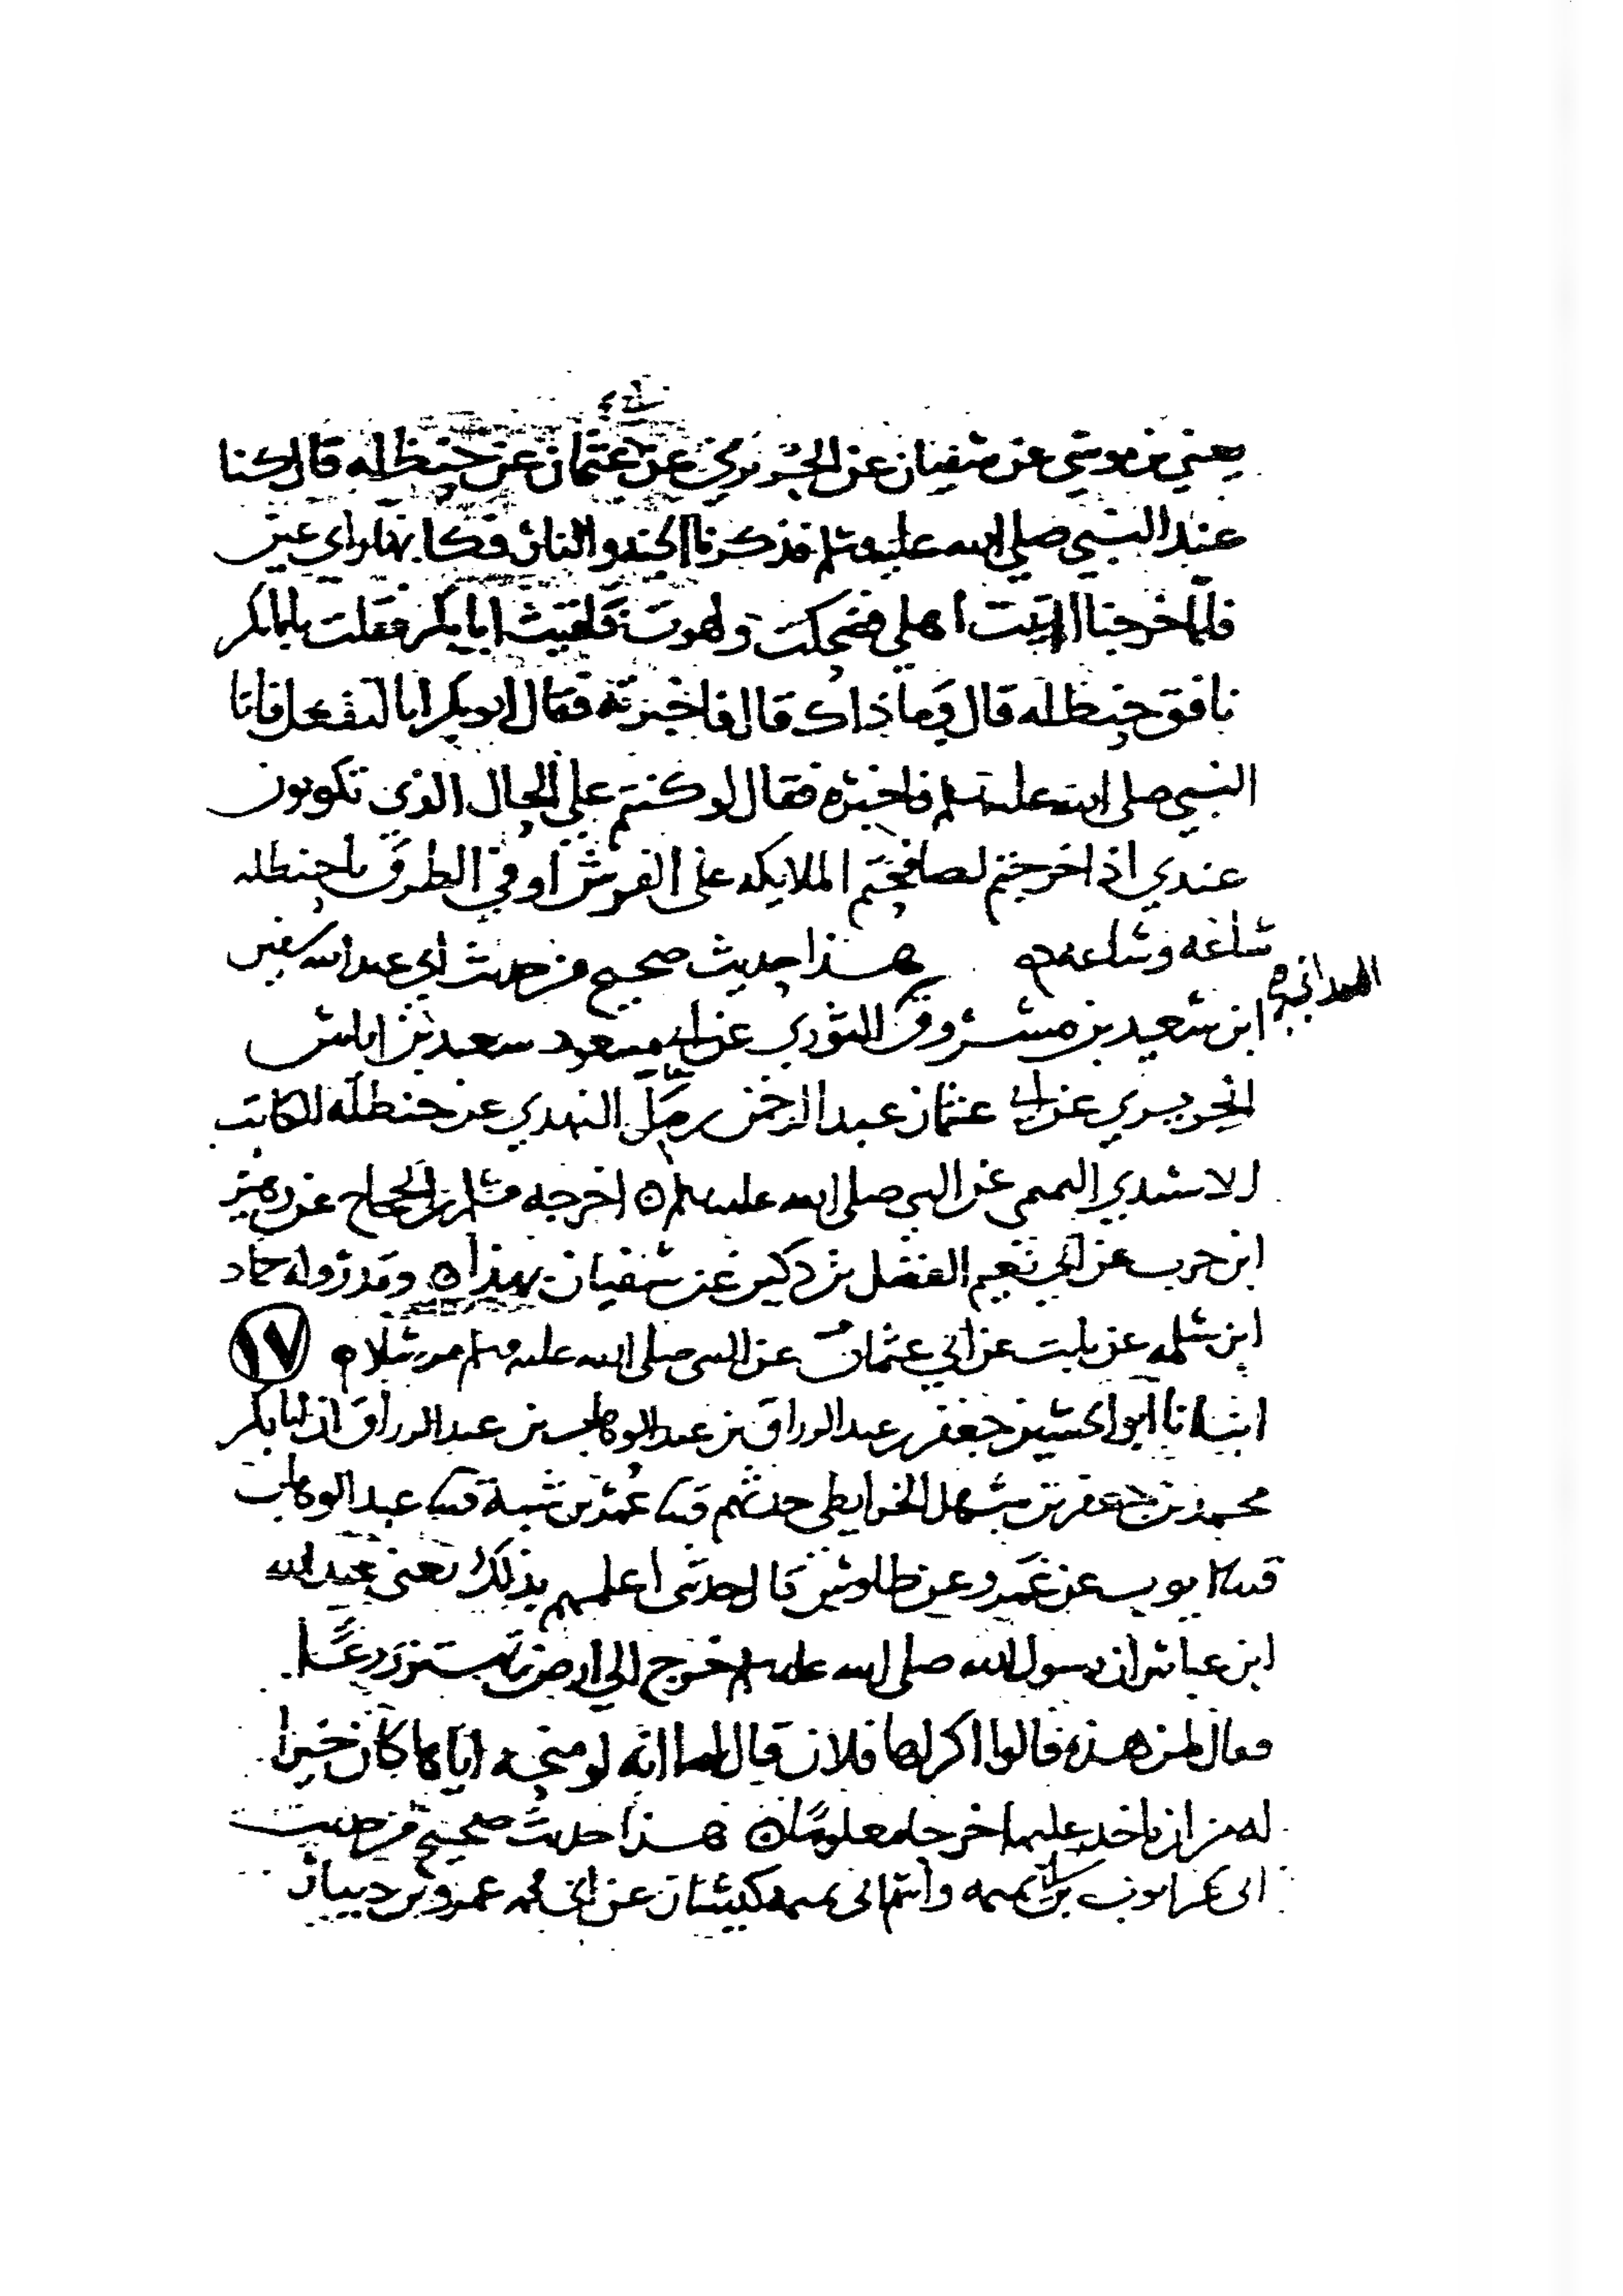 يعني بن موسى عن سفيان عن الجريري عن ابي عثمان عن حنظله قال كنا
عند النبي صلى الله عليه وسلم فذكرنا الجنه والنار فكانهما راي عين
فلما خرجنا اتيت اهلي فضحكت ولهوت فلقيت ابا بكر فقلت يا ابا بكر
نافق حنظله قال وما ذاك قال فاخبرته فقال ابو بكر انا لنفعل فاتا
النبي صلى الله عليه وسلم فاخبره فقال لو كنتم على الحال الذي تكونون
عندي اذا خرجتم لصافحتم الملايكه على الفرش او في الطرق يا حنظله
ساعه وساعه هذا حديث صحيح من حديث ابي عبد الله سفين
الهمداني
ابن سعيد بن مسروق الثوري عن ابي مسعود سعيد بن اياس
الجريري عن ابي عثمان عبد الرحمن بن مل النهدي عن حنظله الكاتب
الاسيدي التميمي عن النبي صلى الله عليه وسلم اخرجه مسلم بن الحجاج عن زهير
ابن حرب عن ابي نعيم الفضل بن دكين عن سفيان بهذا وقد رواه حماد
ابن سلمه عن ثابت عن ابي عثمان عن النبي صلى الله عليه وسلم مرسلا
١٧
انبانا ابو الحسين جعفر بن عبد الرزاق بن عبد الوهاب بن عبد الرزاق ان ابا بكر
محمد بن جعفر بن سهل الخرايطي حدثهم قثنا عمر بن شبة قثنا عبد الوهاب
قثنا ايوب عن عمرو عن طاوس قال حدثني اعلمهم بذلك يعني عبد الله
ابن عباس ان رسول الله صلى الله عليه وسلم خرج الى ارض تهتز زرعا
فقال لمن هذه فقالوا اكراها فلان قال اما انه لو منحه اياها كان خيرا
له من ان ياخذ عليها خرجا معلوما هذا حديث صحيح من حديث
ابي بكر ايوب بن ابي تميمه واسم ابي تميمه كيسان عن ابي محمد عمرو بن دينار